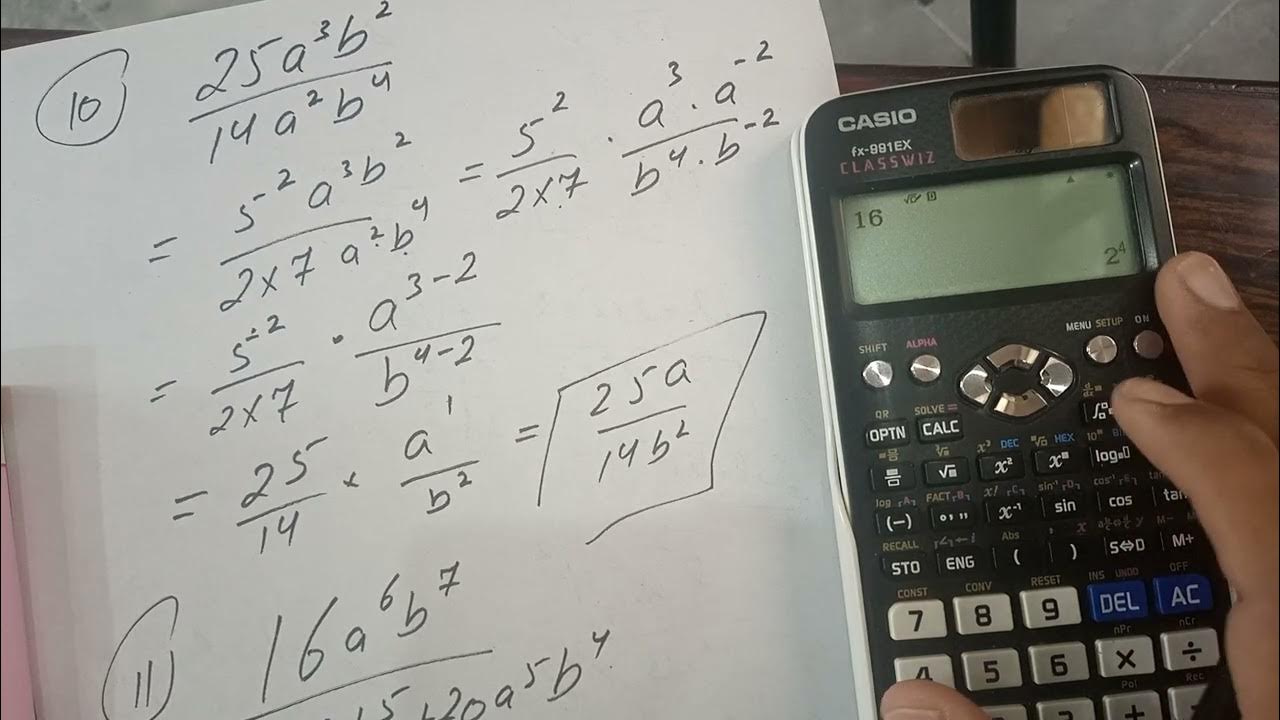 ⑩ 25a³b² / 14a²b⁴
= 5²a³b² / 2×7 a²·b⁴ = 5² / 2×7 · a³·a⁻² / b⁴·b⁻²
= 5² / 2×7 · a³⁻² / b⁴⁻²
= 25 / 14 × a¹ / b² = 25a / 14b²
⑪ 16a⁶b⁷
20a⁵b⁴
CASIO
fx-991EX
CLASSWIZ
16
2⁴
SHIFT ALPHA MENU SETUP ON
QR SOLVE =
OPTN CALC
x³ DEC HEX
√ x² log
log A FACT B x! C sin⁻¹ D cos⁻¹ E
(−) x⁻¹ sin cos tan
RECALL Abs x M−
STO ENG ( ) S⇔D M+
CONST CONV RESET INS UNDO OFF
7 8 9 DEL AC
nPr nCr
4 5 6 × ÷
Pol Rec
+